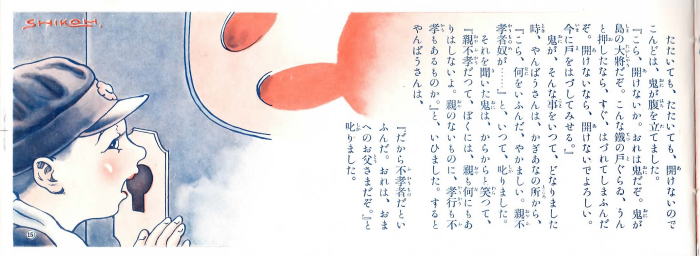 たたいても、たたいても、開けないので
こんどは、鬼が腹を立てました。
『こら、開けないか。おれは鬼だぞ。鬼が
島の大将だぞ。こんな鐵の戸ぐらゐ、うん
と押したなら、すぐ、はづれてしまふんだ
ぞ。開けないなら、開けないでよろしい。
今に戸をはづしてみせる。』
鬼が、そんな事をいつて、どなりました
時、やんばうさんは、かぎあなの所から、
『こら、何をいふんだ、やかましい。親不
孝者奴が……』と、いつて、叱りました。
それを聞いた鬼は、からからと笑つて、
『親不孝だつて、ぼくには、親も何にもあ
りはしないよ。親のないものに、孝行も不
孝もあるものか。』と、いひました。すると
やんばうさんは、
『だから不孝者だとい
ふんだ。おれは、おま
へのお父さまだぞ。』と
叱りました。
SHIKOH.
15